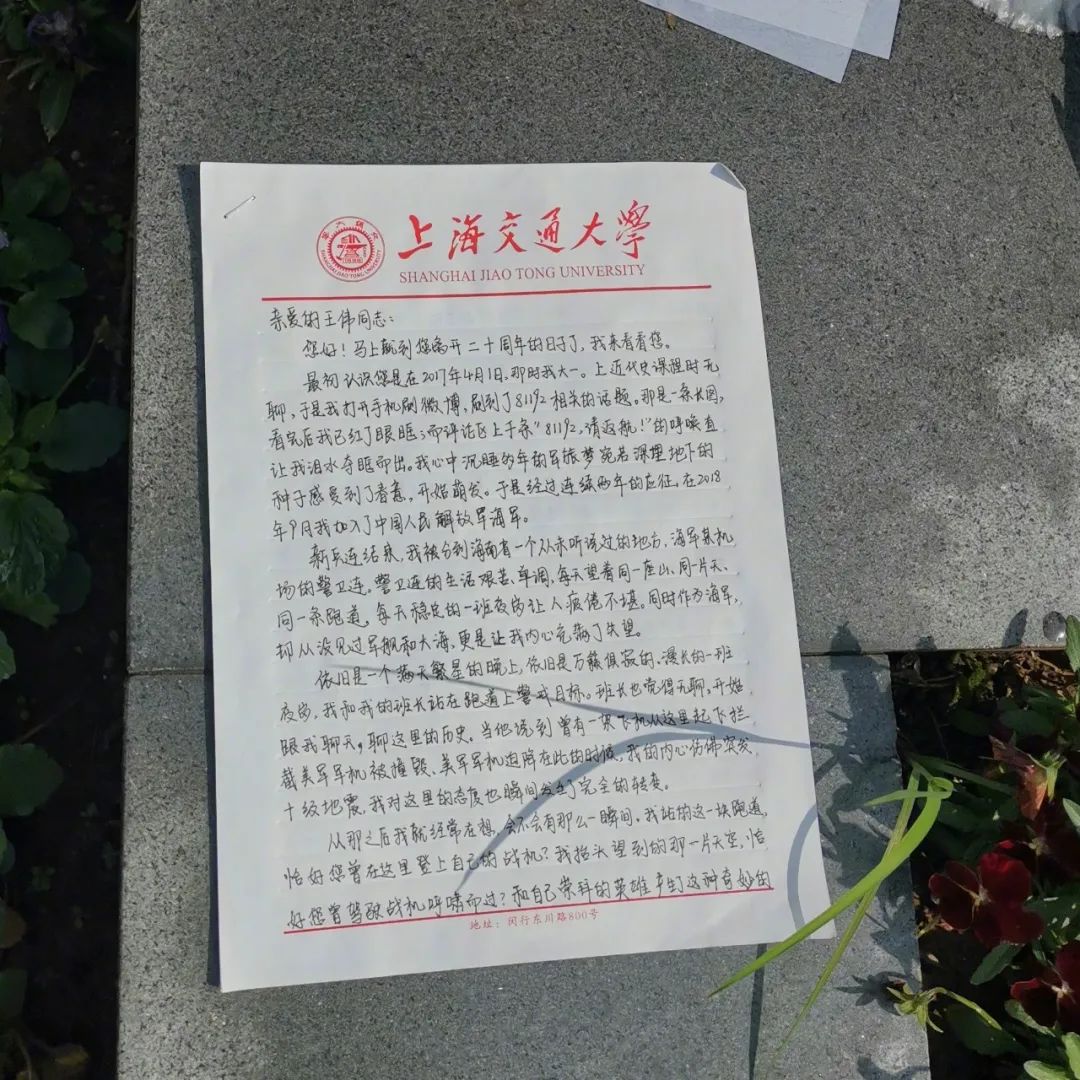 上海交通大學
SHANGHAI JIAO TONG UNIVERSITY
SHANGHAI JIAO TONG UNIVERSITY
亲爱的王伟同志:
您好!马上就到您离开二十周年的日子了,我来看看您。
最初认识您是在2017年4月1日,那时我大一。上近代史课程时无
聊,于是我打开手机刷微博,刷到了81192相关的话题。那是一条长图,
看完后我已红了眼眶;而评论区上千条“81192,请返航!”的呼唤直
让我泪水夺眶而出。我心中沉睡多年的军旅梦宛若深埋地下的
种子感受到了春意,开始萌发。于是经过连续两年的应征,在2018
年9月我加入了中国人民解放军海军。
新兵连结束,我被分到海南省一个从未听说过的地方,海军某机
场的警卫连。警卫连的生活艰苦、单调,每天望着同一座山、同一片天、
同一条跑道。每天稳定的一班夜岗让人疲倦不堪。同时作为海军,
却从没见过军舰和大海,更是让我内心充满了失望。
依旧是一个满天繁星的晚上,依旧是万籁俱寂的、漫长的一班
夜岗,我和我的班长站在跑道上警戒目标。班长也觉得无聊,开始
跟我聊天,聊这里的历史。当他说到曾有一架飞机从这里起飞拦
截美军军机被撞毁、美军军机迫降在此的时候,我的内心仿佛突发
十级地震,我对这里的态度也瞬间发生了完全的转变。
从那之后我就经常在想,会不会有那么一瞬间,我站的这一块跑道,
恰好您曾在这里登上自己的战机?我抬头望到的那一片天空,恰
好您曾驾驶战机呼啸而过?和自己崇拜的英雄产生了这种奇妙的
地址:闵行东川路800号